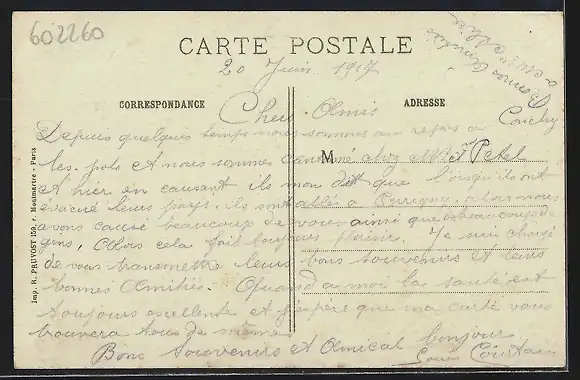 602260
CARTE POSTALE
20 Juin 1917
Bonnes Amitiés
CORRESPONDANCE
ADRESSE
Cheis Amis
Depuis quelques temps nous sommes au repos a Conchy
les pots et nous sommes cantonné chez M Petel
M
et hier en causant ils mon dit que lorsqu'ils ont
évacué leurs pays. ils sont allé a alors nous
avons causé beaucoup de vous ainsi que de beaucoup de
gens, Alors cela fait toujours plaisir. Je suis chargé
de vous transmettre leurs bons souvenirs et leurs
bonnes Amitiés. Quand a moi la santé est
toujours excellente et j'espère que ma carte vous
trouvera tous de mêmes
Bons souvenirs et Amical bonjour
Louis Courtain
Imp. R. PRUVOST 159, r. Montmartre - Paris